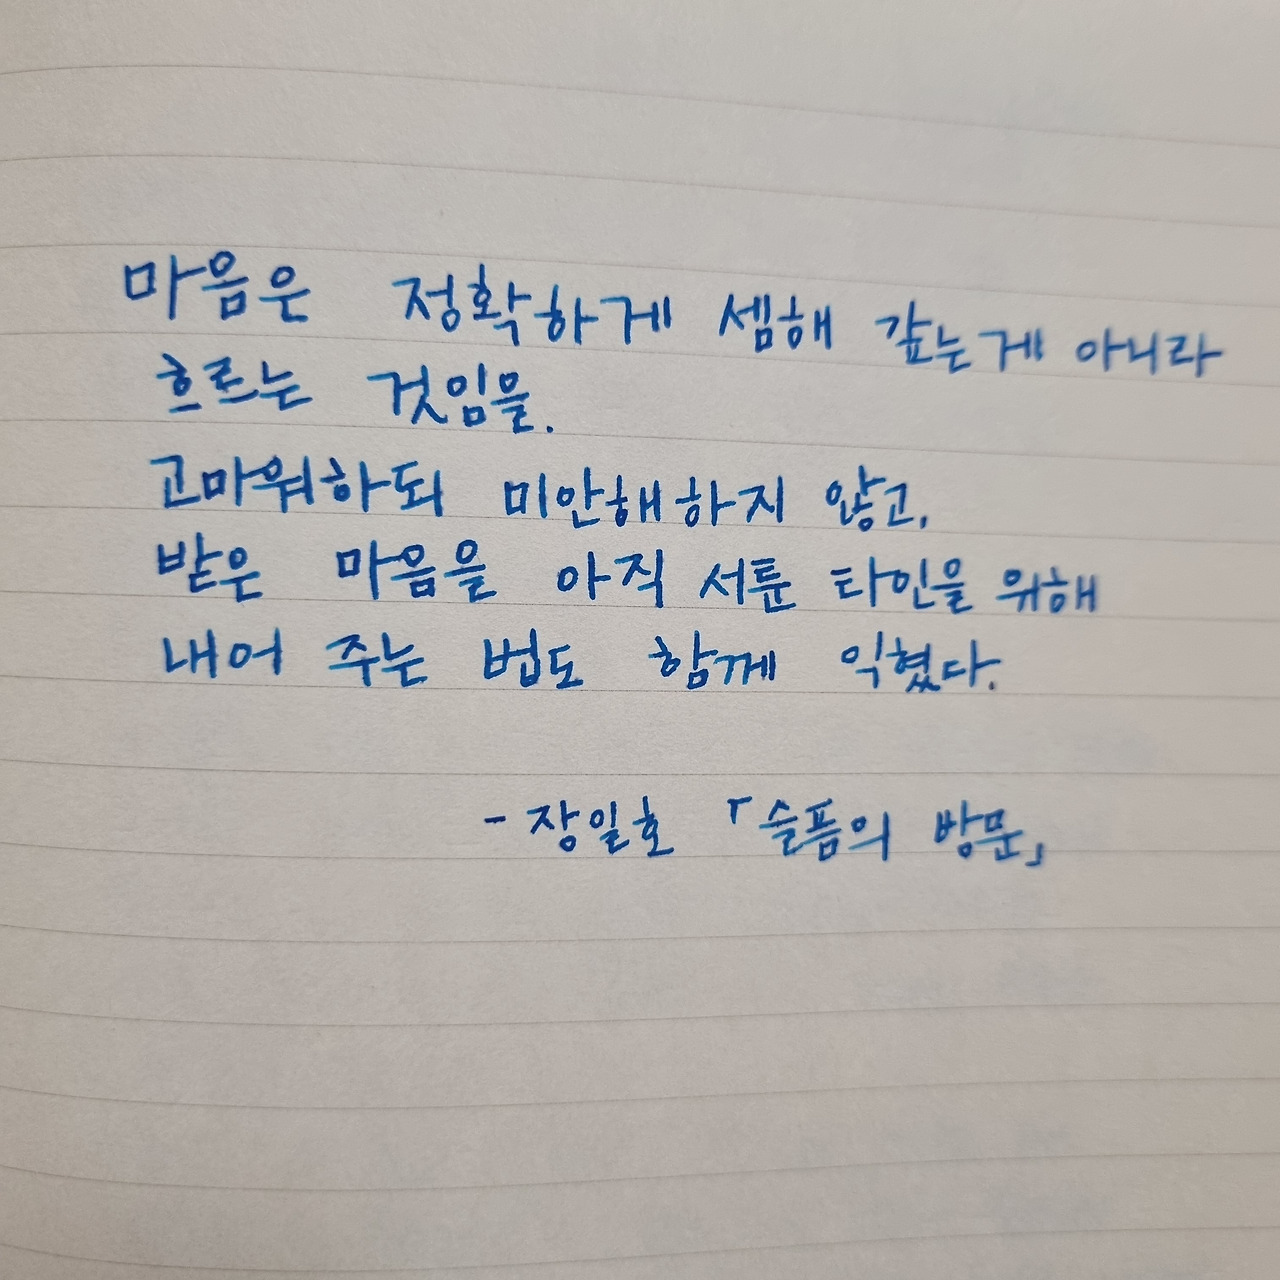 마음은 정확하게 셈해 갚는게 아니라
흐르는 것임을.
고마워하되 미안해하지 않고,
받은 마음을 아직 서툰 타인을 위해
내어 주는 법도 함께 익혔다.
- 장일호 「슬픔의 방문」